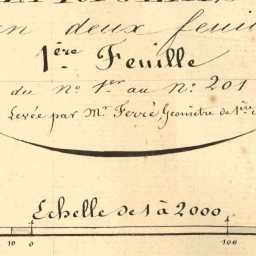 en deux feuil
1ère Feuille
du No. 1er au no. 201
Levée par Mr. Ferré Géomètre de 1ère
Echelle de 1 à 2000.
10 0 100